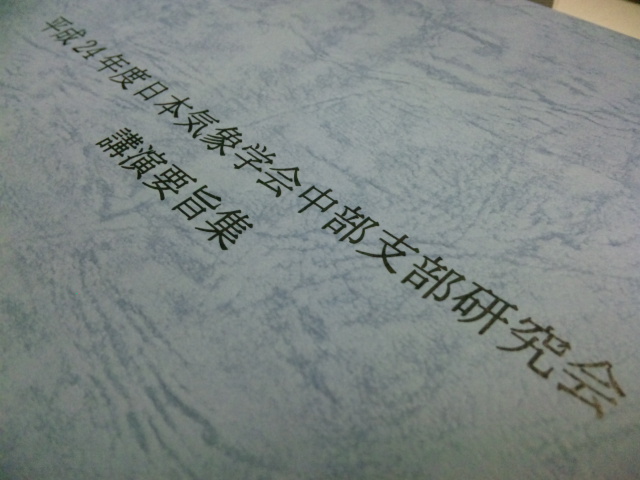 平成24年度日本気象学会中部支部研究会
講演要旨集